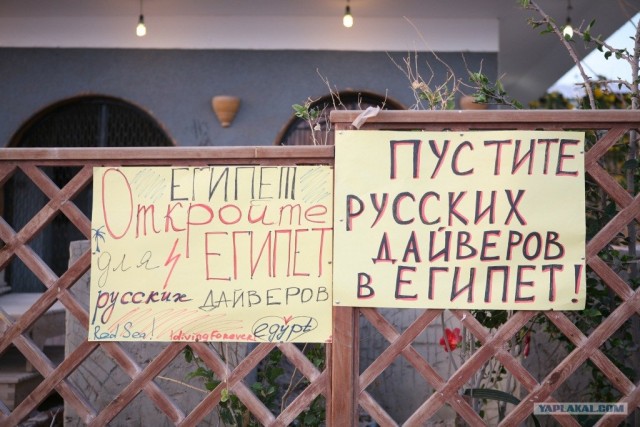 ЕГИПЕТ!!!
Откройте
для ЕГИПЕТ
русских ДАЙВЕРОВ
Red Sea! diving forever! egypt
ПУСТИТЕ
РУССКИХ
ДАЙВЕРОВ
В ЕГИПЕТ!
YAPLAKAL.COM